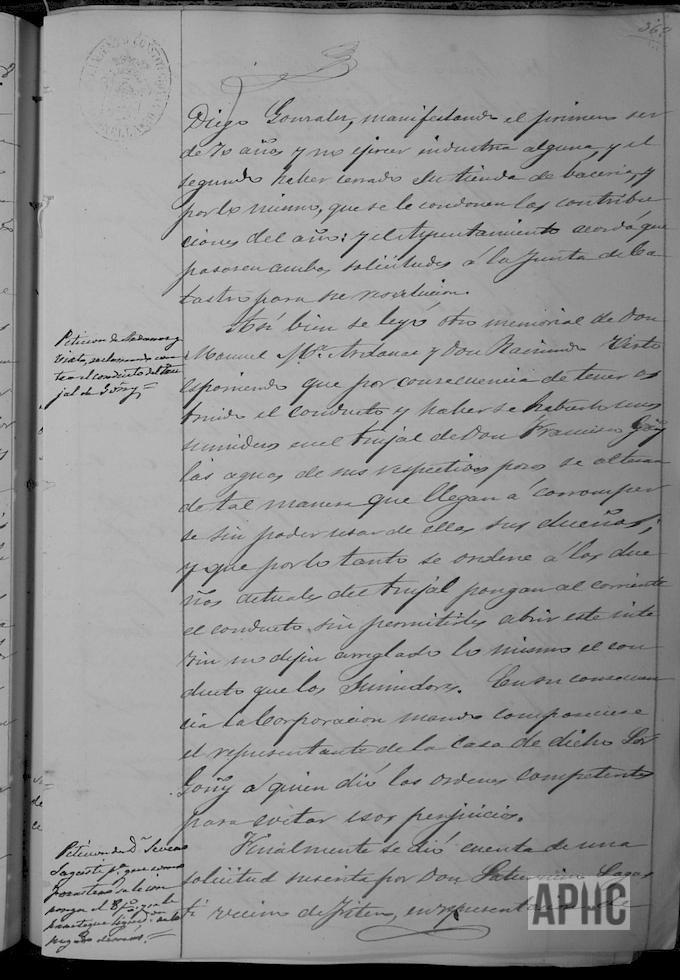 360
Diego Gonzalez, manifestando el primero ser
de 70 años y no ejercer industria alguna, y el
segundo haber cerrado su tienda de bacería, y
por lo mismo, que se le condonen las contribu
ciones del año: y el Ayuntamiento acordó que
pasasen ambas solicitudes á la Junta de Ca
tastro para su resolucion.
Peticion de Andanaz y
Visto, reclamando con
tra el conducto del tru
jal de Goñy=
Así bien se leyó otro memorial de Don
Manuel Mª. Andanaz y Don Raimundo Visto
esponiendo que por consecuencia de tener os
truido el conducto y haberse hecho unos
sumideros en el trujal de Don Francisco Goñy
las aguas de sus respectivos pozos se alteran
de tal manera que llegan á corromper
se sin poder usar de ellas sus dueños;
y que por lo tanto se ordene á los due
ños actuales del trujal pongan al corriente
el conducto sin permitirles abrir este inte
rin no dejen arreglado lo mismo el con
ducto que los sumideros. En su consecuen
cia la Corporacion mandó compareciese
el representante de la casa de dicho Sor.
Goñy á quien dió las ordenes competentes
para evitar esos perjuicios.
Peticion de Dª
Sagasti pª. que como
forastera se le
Finalmente se dió cuenta de una
solicitud suscrita por Don Saturnino Sagas
ti vecino de, en representacion de
APHC